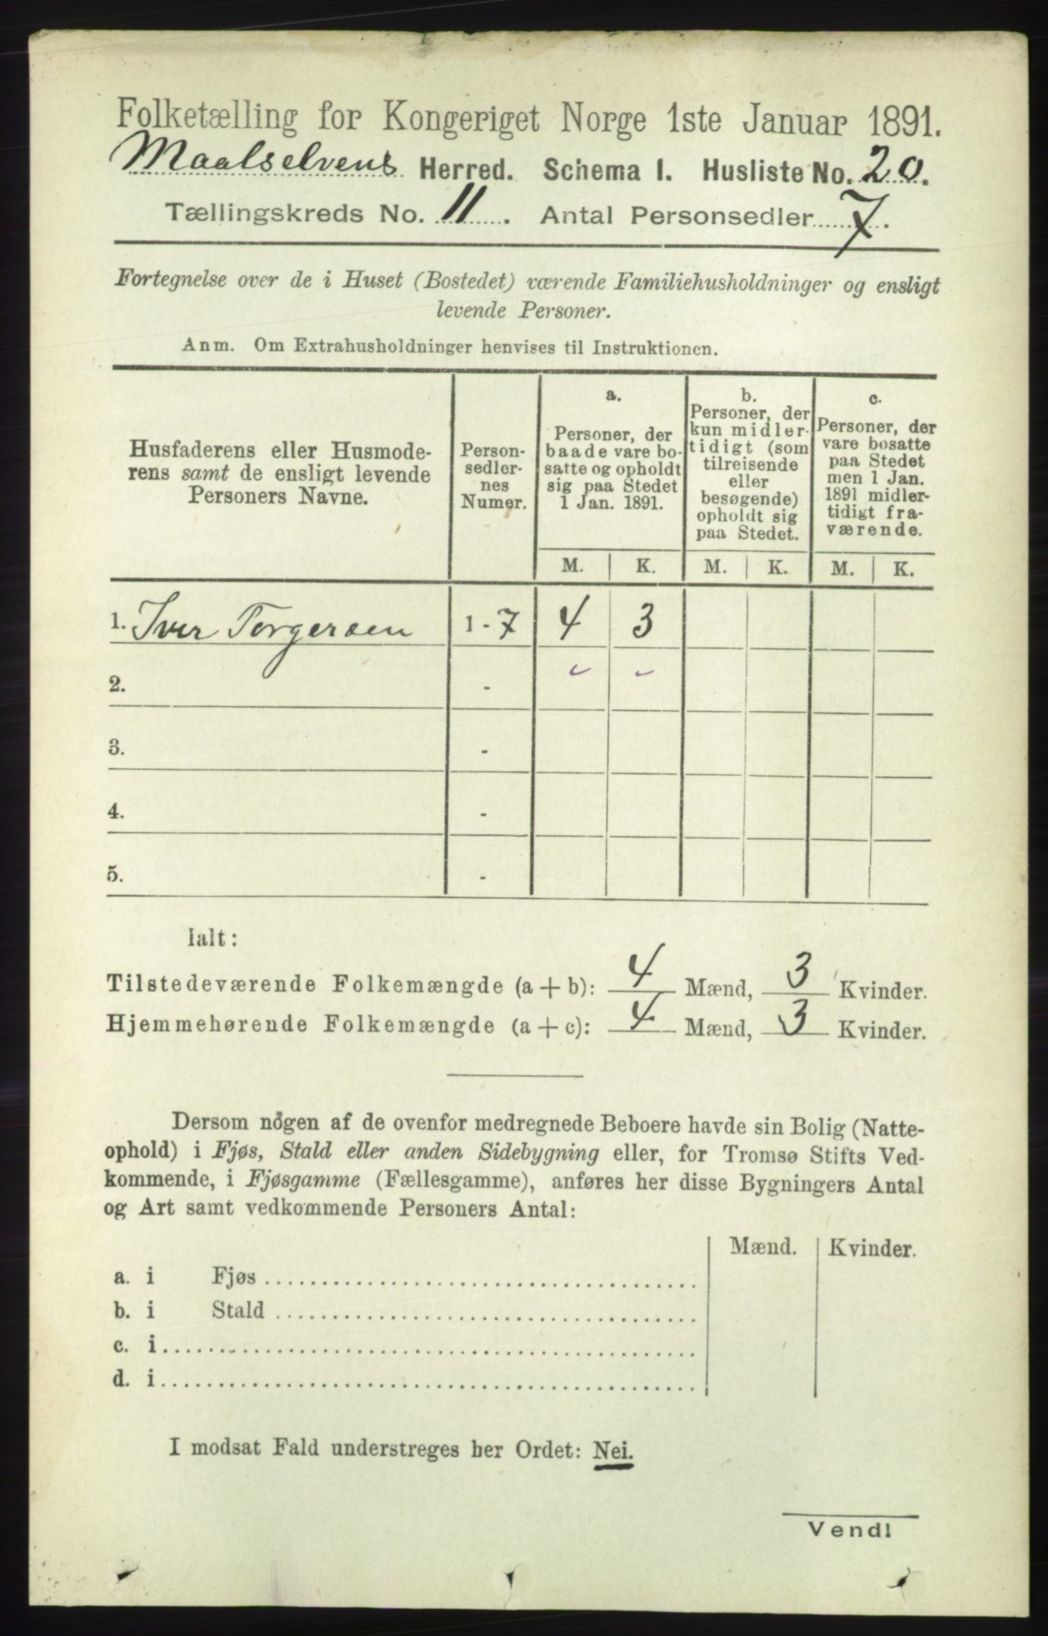 Folketælling for Kongeriget Norge 1ste Januar 1891.
Maalselvens Herred. Schema I. Husliste No. 20.
Tællingskreds No. 11. Antal Personsedler 7.
Fortegnelse over de i Huset (Bostedet) værende Familiehusholdninger og ensligt
levende Personer.
Anm. Om Extrahusholdninger henvises til Instruktionen.
Husfaderens eller Husmode-
rens samt de ensligt levende
Personers Navne.
Person-
sedler-
nes
Numer.
a.
Personer, der
baade vare bo-
satte og opholdt
sig paa Stedet
1 Jan. 1891.
b.
Personer, der
kun midler-
tidigt (som
tilreisende
eller
besøgende)
opholdt sig
paa Stedet.
c.
Personer, der
vare bosatte
paa Stedet
men 1 Jan.
1891 midler-
tidigt fra-
værende.
M. K. M. K. M. K.
1. Iver Torgersen 1 - 7 4 3
2. -
3. -
4. -
5. -
Ialt:
Tilstedeværende Folkemængde (a + b): 4 Mænd, 3 Kvinder.
Hjemmehørende Folkemængde (a + c): 4 Mænd, 3 Kvinder.
Dersom nogen af de ovenfor medregnede Beboere havde sin Bolig (Natte-
ophold) i Fjøs, Stald eller anden Sidebygning eller, for Tromsø Stifts Ved-
kommende, i Fjøsgamme (Fællesgamme), anføres her disse Bygningers Antal
og Art samt vedkommende Personers Antal:
Mænd. Kvinder.
a. i Fjøs
b. i Stald
c. i
d. i
I modsat Fald understreges her Ordet: Nei.
Vend!